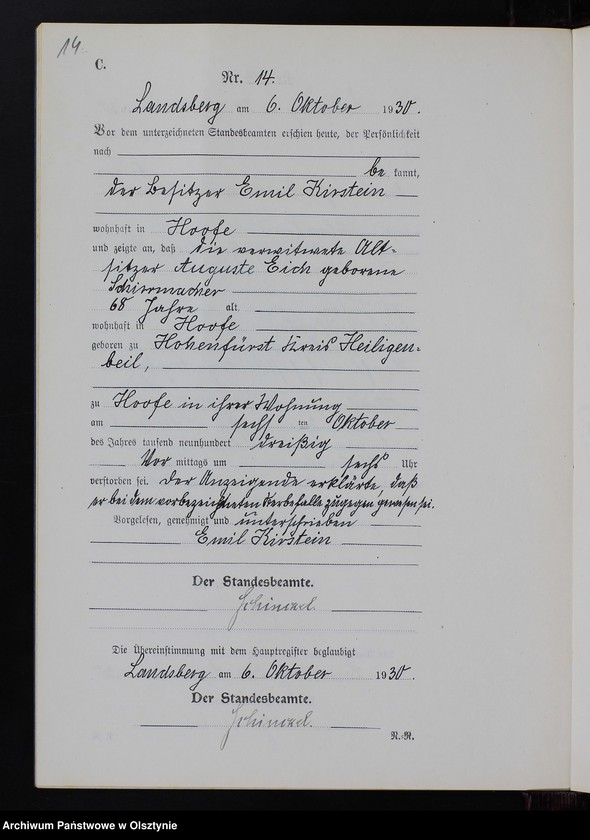 14.
C.
Nr. 14.
Landsberg am 6. Oktober 1930.
Vor dem unterzeichneten Standesbeamten erschien heute, der Persönlichkeit
nach
be kannt,
der Besitzer Emil Kirstein
wohnhaft in Hoofe
und zeigte an, daß die verwitwete Alt-
sitzer Auguste Eich geborene
Schirrmacher
68 Jahre alt
wohnhaft in Hoofe
geboren zu Hohenfürst Kreis Heiligen-
beil,
zu Hoofe in ihrer Wohnung
am sechs ten Oktober
des Jahres tausend neunhundert dreißig
Vor mittags um sechs Uhr
verstorben sei. Der Anzeigende erklärte, daß
er bei dem vorbezeichneten Sterbefalle zugegen gewesen sei.
Vorgelesen, genehmigt und unterschrieben
Emil Kirstein
Der Standesbeamte.
Schinkel.
Die Übereinstimmung mit dem Hauptregister beglaubigt
Landsberg am 6. Oktober 1930.
Der Standesbeamte.
Schinkel.
N.-R.
Archiwum Państwowe w Olsztynie